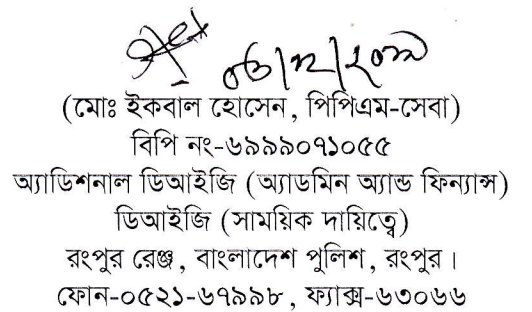 (মোঃ ইকবাল হোসেন, পিপিএম-সেবা)
বিপি নং-৬৯৯৯০৭১০৫৫
অ্যাডিশনাল ডিআইজি (অ্যাডমিন অ্যান্ড ফিন্যান্স)
ডিআইজি (সাময়িক দায়িত্বে)
রংপুর রেঞ্জ, বাংলাদেশ পুলিশ, রংপুর।
ফোন-০৫২১-৬৭৯৯৮, ফ্যাক্স-৬৩০৬৬